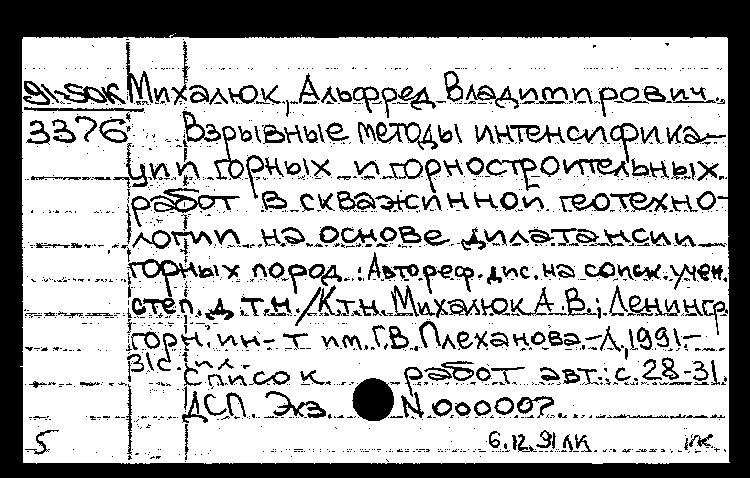 91-5ОК Михалюк, Альфред Владимирович.
3376 Взрывные методы интенсифика-
ции горных и горностроительных
работ в скважинной геотехно-
логии на основе дилатансии
горных пород : Автореф. дис. на соиск. учен.
степ. д.т.н./К.т.н. Михалюк А.В.; Ленингр.
горн. ин-т им. Г.В. Плеханова.-Л, 1991.-
31с. ил.
Список работ авт.: с. 28-31.
ДСП. Экз. N 000007.
5 6.12.91 ЛК